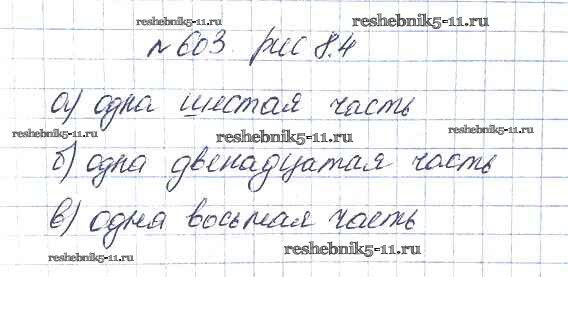 reshebnik5-11.ru
reshebnik5-11.ru
№603 рис 8.4
а) одна шестая часть
reshebnik5-11.ru
reshebnik5-11.ru
reshebnik5-11.ru
б) одна двенадцатая часть
в) одна восьмая часть
reshebnik5-11.ru
reshebnik5-11.ru